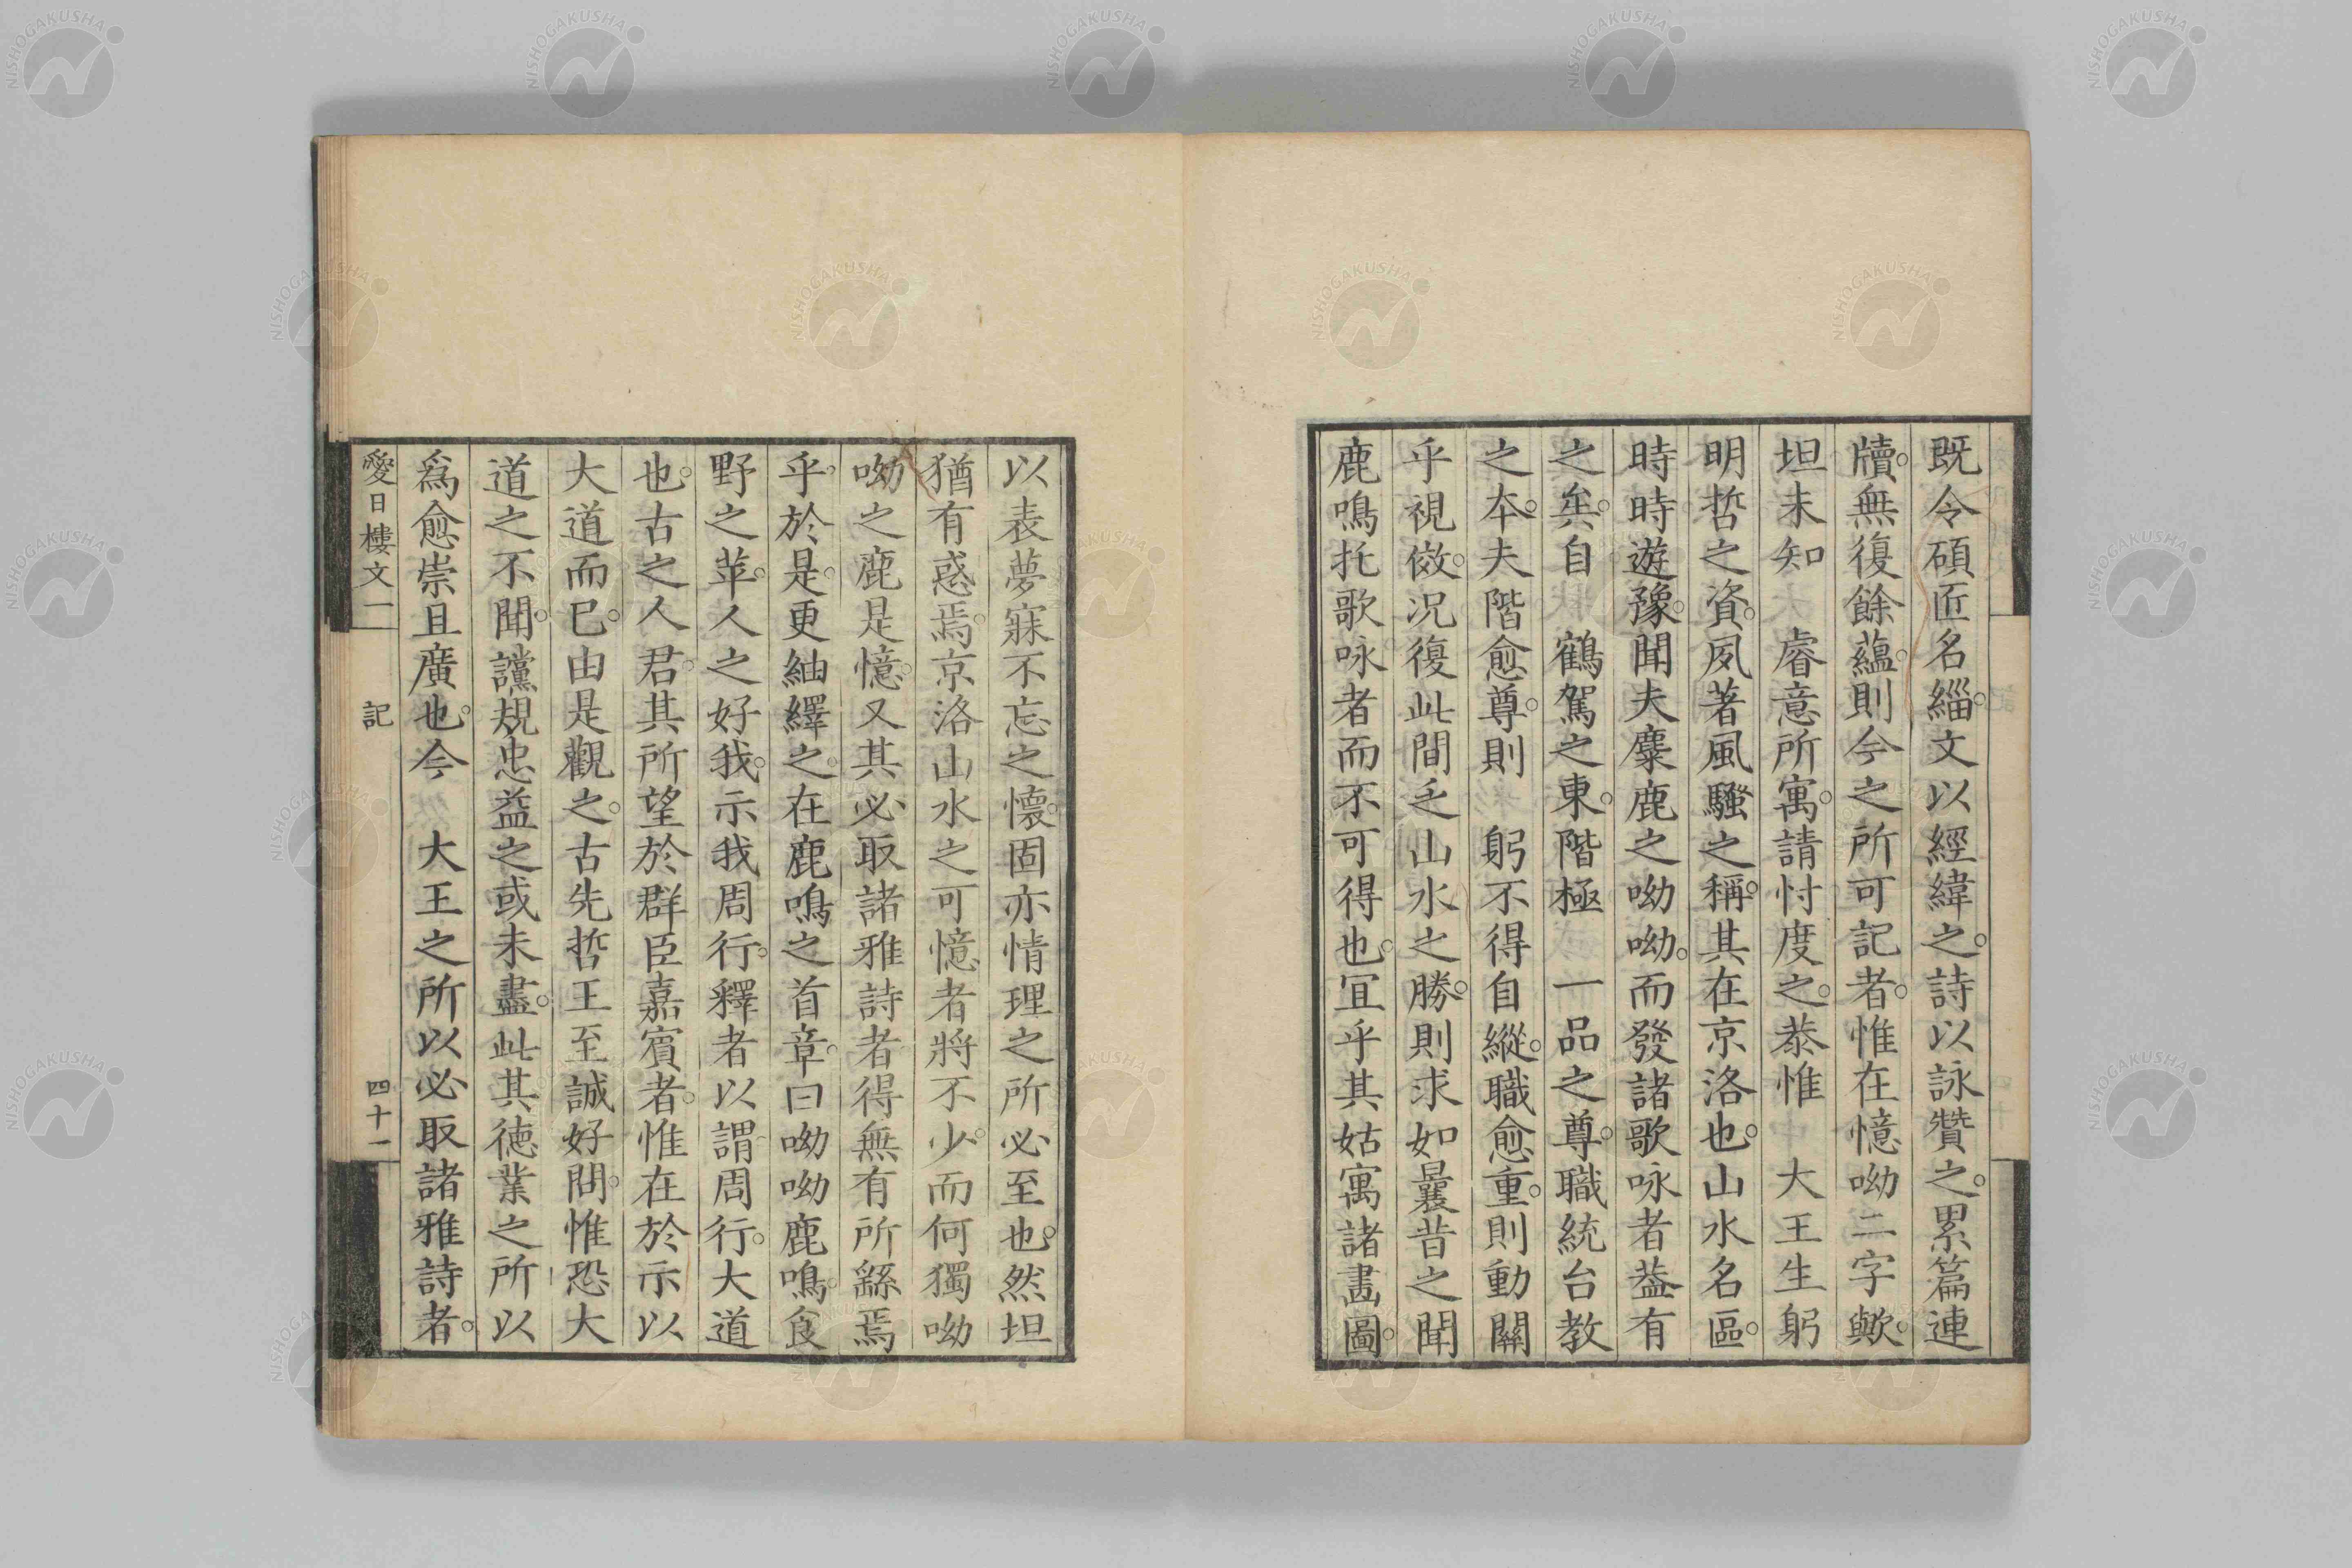 既令碩匠名緇。文以經緯之。詩以詠贊之。累篇連
牘。無復餘蘊。則今之所可記者。惟在憶呦二字歟。
坦未知　睿意所寓。請忖度之。恭惟　大王生躬
明哲之資。夙著風騷之稱。其在京洛也。山水名區。
時時遊豫。聞夫麋鹿之呦呦。而發諸歌咏者。葢有
之矣。自　鶴駕之東。階極　一品之尊。職統台教
之本。夫階愈尊。則　躬不得自縱。職愈重。則動關
乎視傚。况復此間乏山水之勝。則求如曩昔之聞
鹿鳴托歌咏者而不可得也。宜乎其姑寓諸畫圖。
以表夢寐不忘之懷。固亦情理之所必至也。然坦
猶有惑焉。京洛山水之可憶者將不少。而何獨呦
呦之鹿是憶。又其必取諸雅詩者得無有所繇焉
乎。於是。更紬繹之。在鹿鳴之首章。曰呦呦鹿鳴。食
野之苹。人之好我。示我周行。釋者以謂周行。大道
也。古之人君。其所望於群臣嘉賓者。惟在於示以
大道而已。由是觀之。古先哲王至誠好問。惟恐大
道之不聞。讜規忠益之或未盡。此其德業之所以
爲愈崇且廣也。今　大王之所以必取諸雅詩者。
愛日樓文一　記　四十一
NISHOGAKUSHA